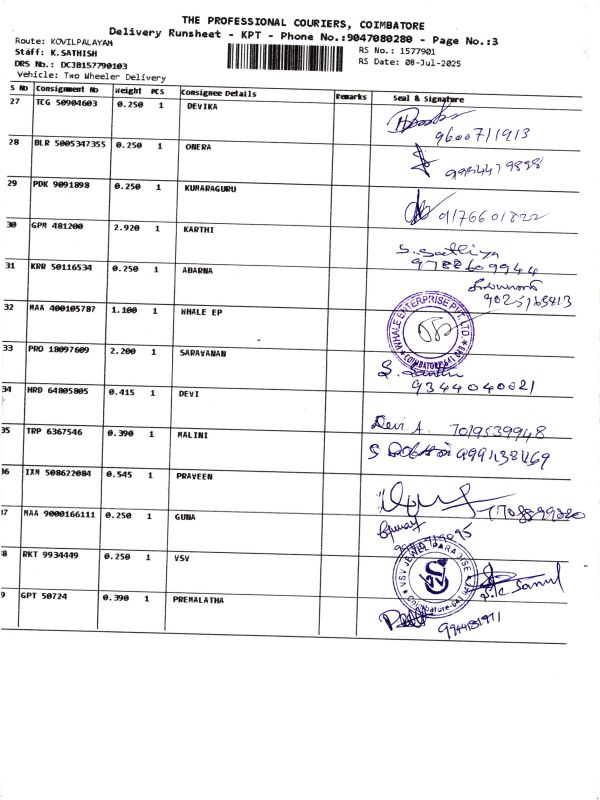 THE PROFESSIONAL COURIERS, COIMBATORE
Delivery Runsheet - KPT - Phone No.:9047080280 - Page No.:3
Route: KOVILPALAYAM
RS No.: 1577901
Staff: K.SATHISH
RS Date: 08-Jul-2025
DRS No.: DCJB157790103
Vehicle: Two Wheeler Delivery
S No Consignment No Weight PCS Consignee Details Remarks Seal & Signature
27 TCG 50904603 0.250 1 DEVIKA
9600711913
28 BLR 5005347355 0.250 1 ONERA
29 PDK 9091898 0.250 1 KUMARAGURU
30 GPM 481200 2.920 1 KARTHI
S. Sathiya
9788609944
31 KRR 50116534 0.250 1 ABARNA
32 MAA 400105787 1.100 1 WHALE EP
WHALE ENTERPRISE PVT. LTD.
33 PRO 18097609 2.200 1 SARAVANAN
9344040021
34 HRD 64805805 0.415 1 DEVI
Devi A. 7019539948
35 TRP 6367546 0.390 1 MALINI
36 IXM 508622084 0.545 1 PRAVEEN
37 MAA 9000166111 0.250 1 GUNA
38 RKT 9934449 0.250 1 VSV
VSV JEWEL PARADISE
39 GPT 50724 0.390 1 PREMALATHA